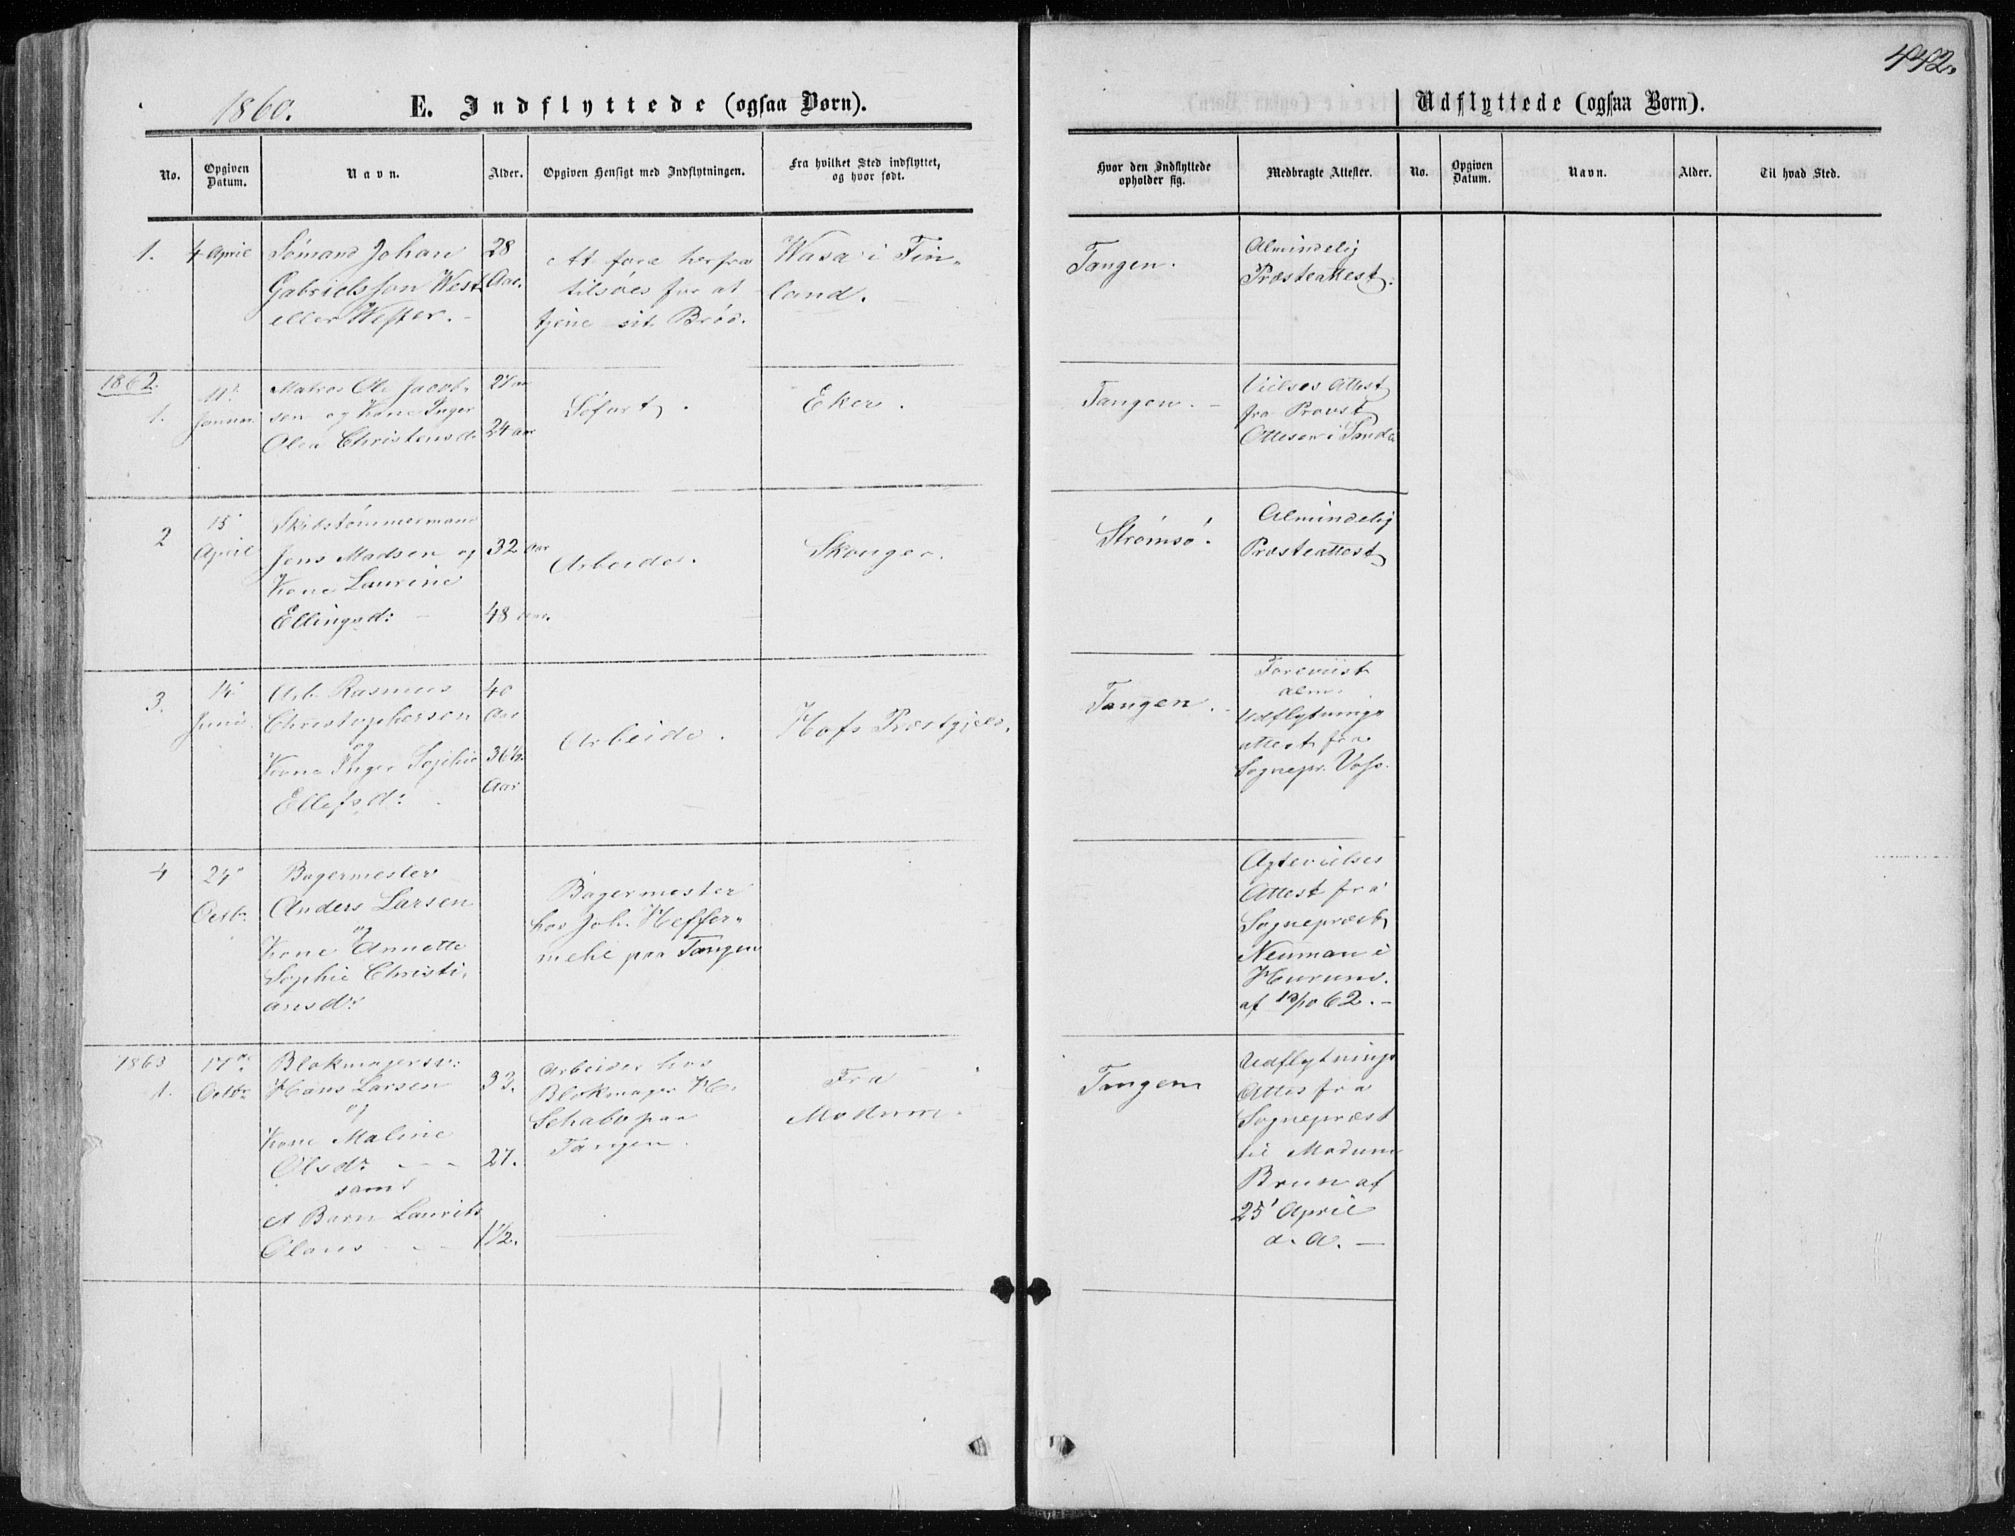 442.
1860.
E. Indflyttede (ogsaa Børn).
Udflyttede (ogsaa Børn).
No.
Opgiven Datum.
Navn.
Alder.
Opgiven Hensigt med Indflytningen.
Fra hvilket Sted indflyttet, og hvor født.
Hvor den Indflyttede opholder sig.
Medbragte Attester.
No.
Opgiven Datum.
Navn.
Alder.
Til hvad Sted.
1.
4 April
Sømand Johan
Gabrielsson West
eller Wester. -
28
Aar.
At fare herfra
tilsøes for at
tjene sit Brød.
Wasa i Fin-
land.
Tangen.
Almindelig
Præsteattest.
1862.
1.
11'
Januar
Matros Ole Jacob-
sen og Kone Inger
Olea Christensd:
27 aar
24 aar
Søfart.
Eker.
Tangen. -
Vielses Attest
fra Provst
Ottesen i Sande
2
15'
April
Skibstømmermand
Jens Madsen og
Kone Laurine
Ellingsd: -
32 Aar
48 Aar.
Arbeide.
Skouger.
Strømsø.
Almindelig
Præsteattest
3.
14'
Juni
Arb. Rasmus
Christophersen
og
Kone Inger Sophie
Ellefsd:
40
Aar
36½
Aar
Arbeide.
Hofs Præstgjeld.
Tangen. -
Foreviist
alm.
Udflytnings
attest fra
Sognepr. Voss.
4
24'
Octbr.
Bagermester
Anders Larsen
og
Kone Annette
Sophie Christi-
ansd:
Bagermester
hos Joh. Heffer-
mehl paa Tangen
Agtevielses
Attest fra
Sognepræst
Neuman i
Hurum.
af 12/10 62. -
1863
1.
17de
Octbr
Blokmagersv:
Hans Larsen
og
Kone Maline
Olsd: - -
samt
et Barn Laurits
Olaus - -
33.
27.
1½.
Arbeider hos
Blokmager H.
Schabo paa
Tangen.
Fra
Modum.
Tangen
Udflytnings
Attest fra
Sognepræst
til Modum
Bruun af
25' April
d. A. -